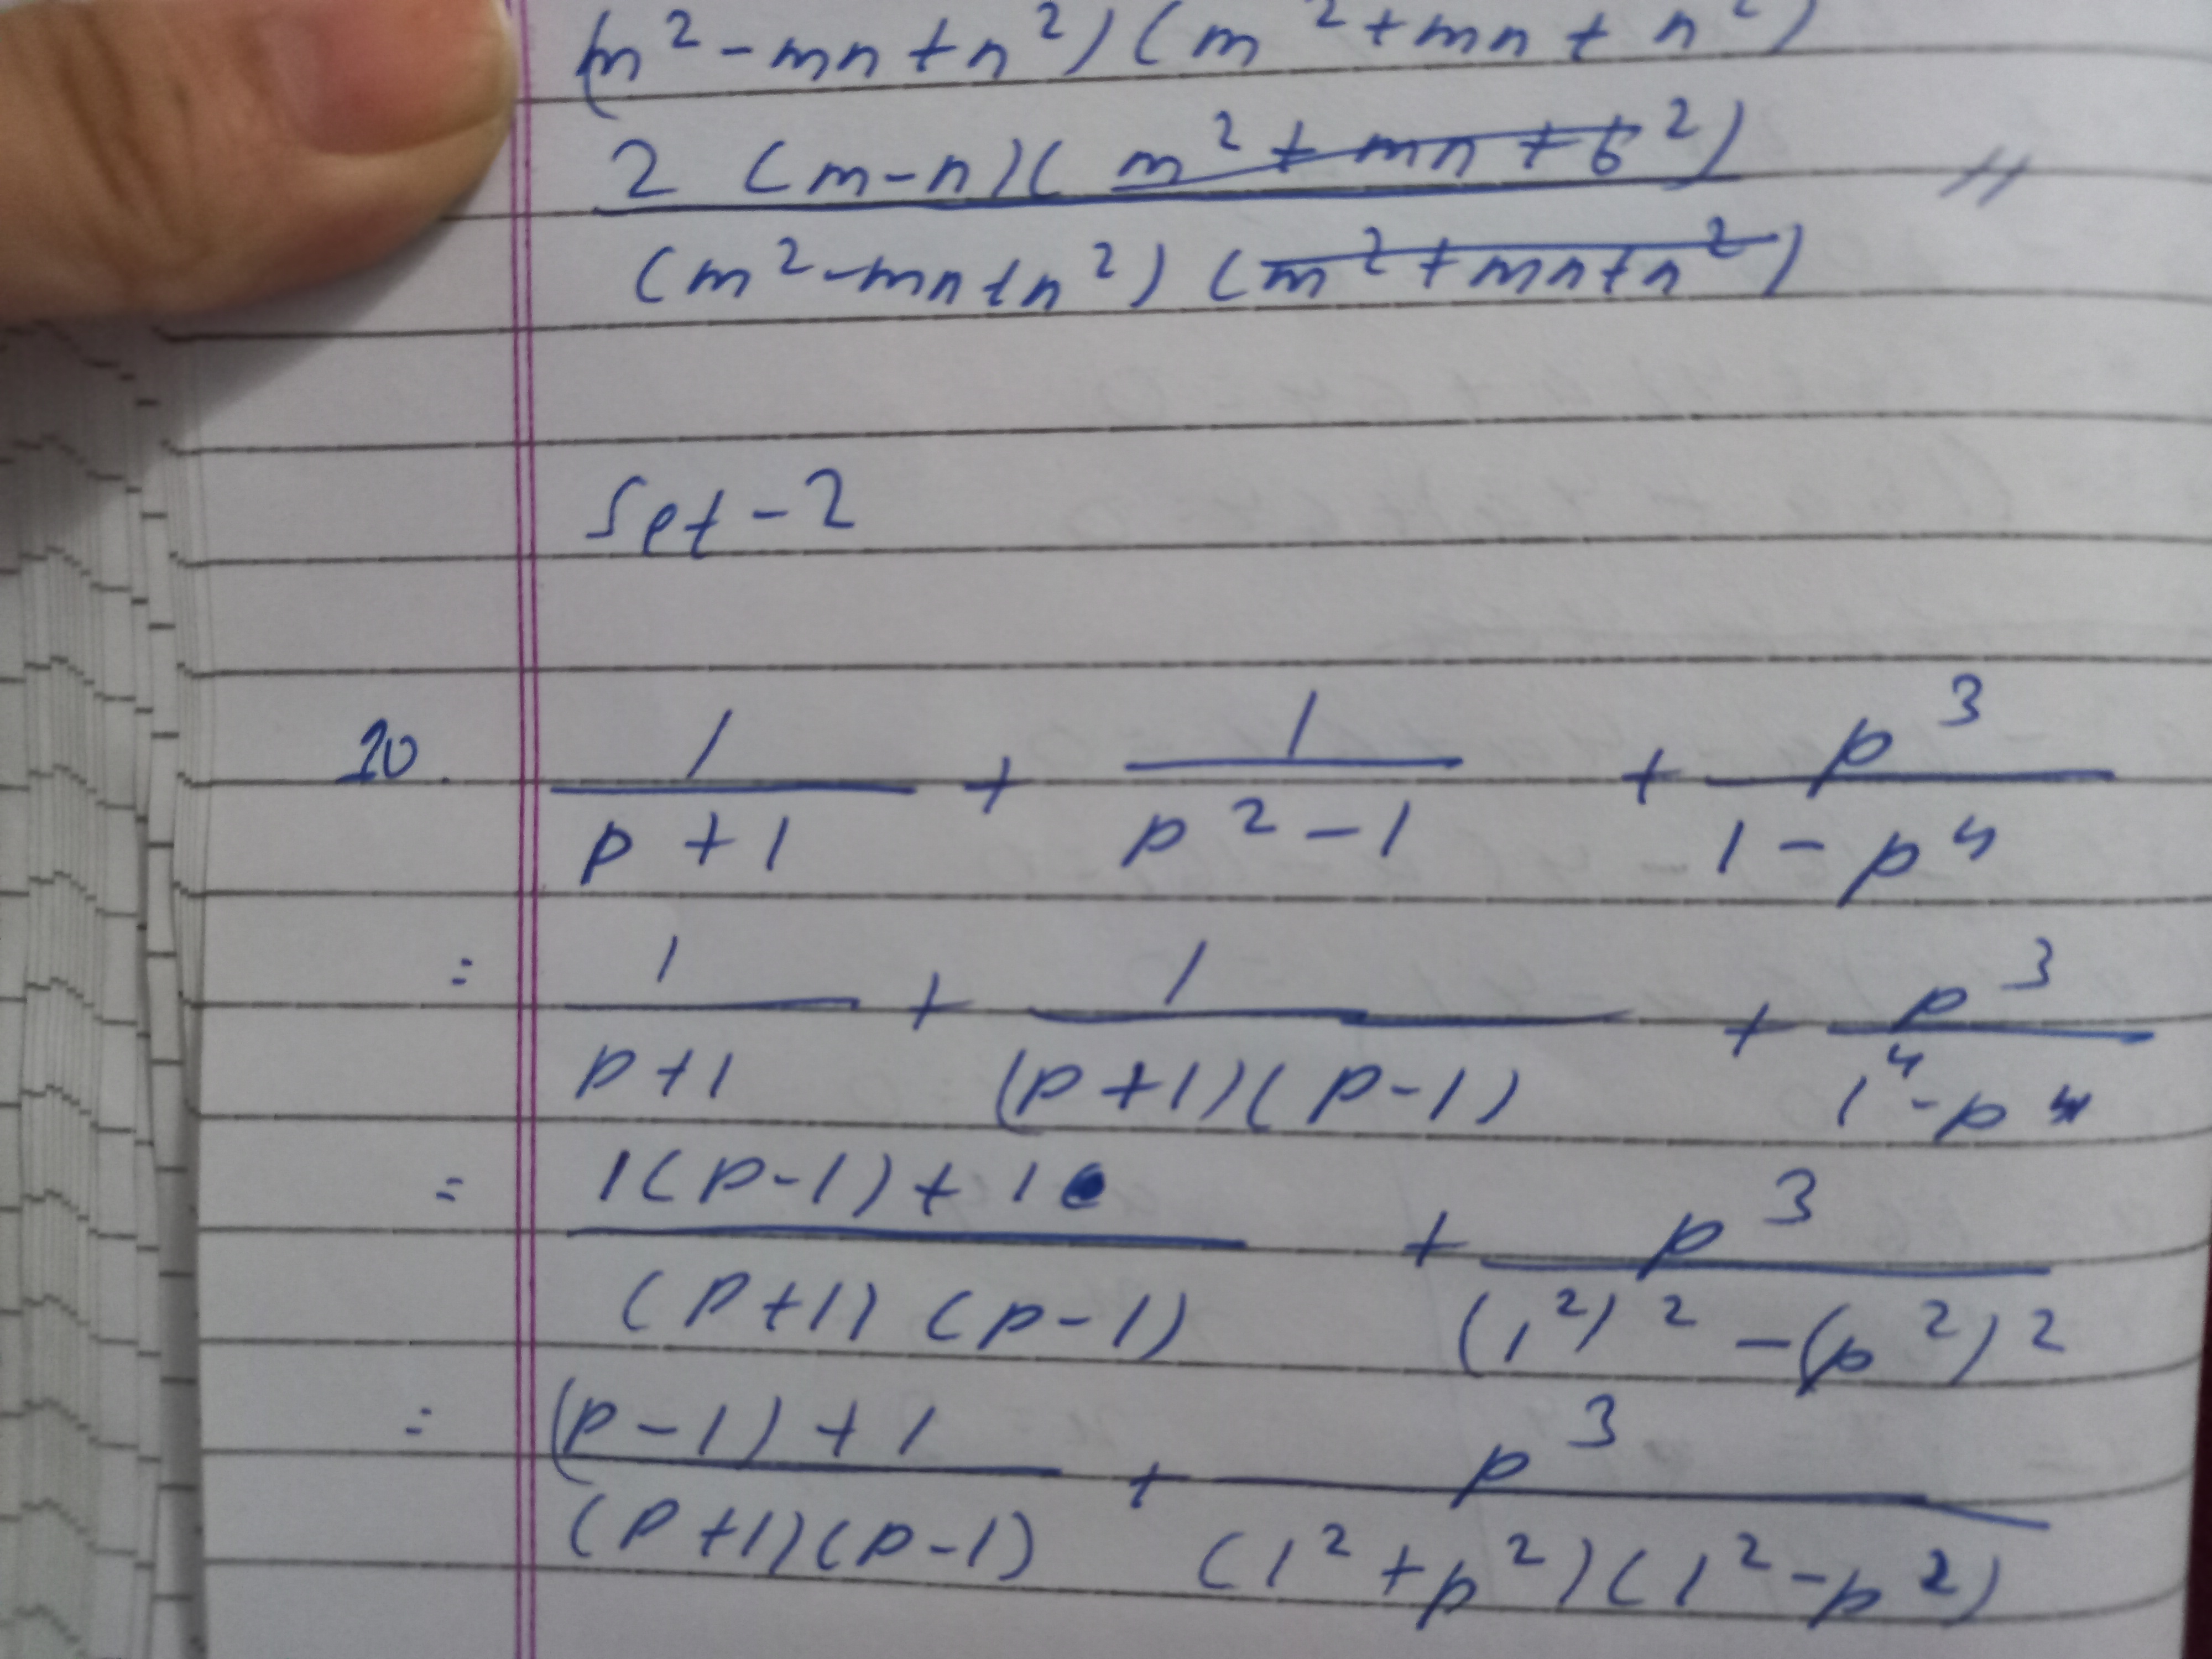 (m² - mn + n²) (m² + mn + n²)
2 (m-n) (m² + mn + b²) //
(m² - mn + n²) (m² + mn + n²)
Set - 2
10. 1 + 1 + p³
p + 1 p² - 1 1 - p⁴
= 1 + 1 + p³
p + 1 (p + 1) (p - 1) 1⁴ - p⁴
= 1 (p - 1) + 1 + p³
(p + 1) (p - 1) (1²)² - (p²)²
= (p - 1) + 1 + p³
(p + 1) (p - 1) (1² + p²) (1² - p²)